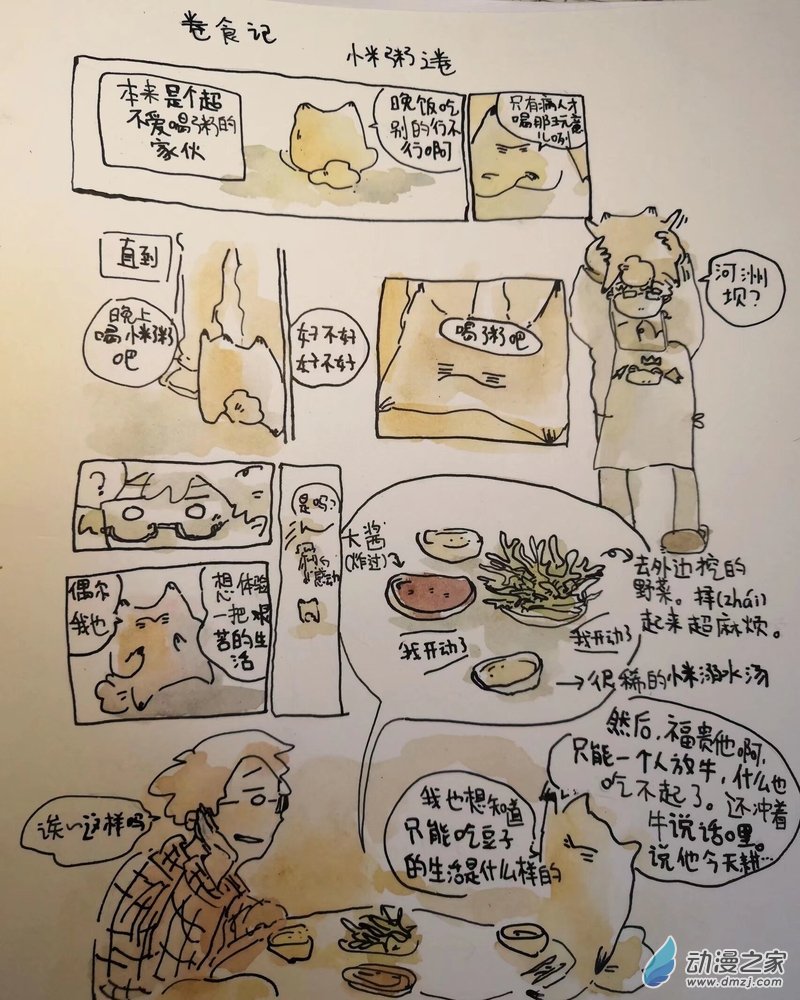 卷食记
小米粥之卷
本来是个超
不爱喝粥的
家伙
晚饭吃
别的行不
行啊
只有病人才
喝那玩意
儿咧
直到
晚上
喝小米粥
吧
好不好
好不好
喝粥吧
河洲
坝?
?
是吗?
感动
偶尔
我也
想体验
一把艰
苦的生
活
大酱
(炸过)
去外边挖的
野菜。择(zhái)
起来超麻烦。
我开动了
我开动了
→很稀的小米溜水汤
然后,福贵他啊,
只能一个人放牛,什么也
吃不起了。还冲着
牛说话哩。
说他今天耕…
我也想知道
只能吃豆子
的生活是什么样的
诶~这样吗
动漫之家
www.dmzj.com